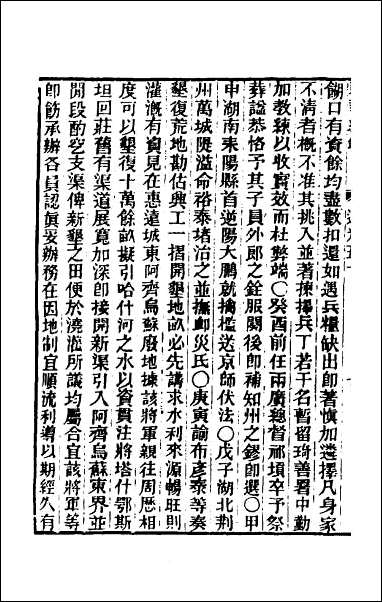 餬口有資餘均盡數扣還如遇兵糧缺出卽著愼加選擇凡身家
不淸者槪不准其挑入並著揀擇兵丁若干名暫留琦善署中勤
加敎練以收實效而杜弊端〇癸酉前任兩廣總督祁𡎴卒予祭
葬諡恭恪予其子員外郎之銓服闋後卽補知州之鏐卽選〇甲
申湖南耒陽縣首逆陽大鵬就擒檻送京師伏法〇戊子湖北荆
州萬城隄溢命裕泰堵治之並撫卹災民〇庚寅諭布彥泰等奏
墾復荒地勘估興工一摺開墾地畝必先講求水利來源暢旺則
灌漑有資見在惠遠城東阿齊烏蘇廢地據該將軍親往周歷相
度可以墾復十萬餘畝擬引哈什河之水以資貫注將塔什鄂斯
坦回莊舊有渠道展寬加深卽接開新渠引入阿齊烏蘇東界並
開段酌空支渠俾新墾之田便於澆灌所議均屬合宜該將軍等
卽飭承辦各員認眞妥辦務在因地制宜順流利導以期經久有